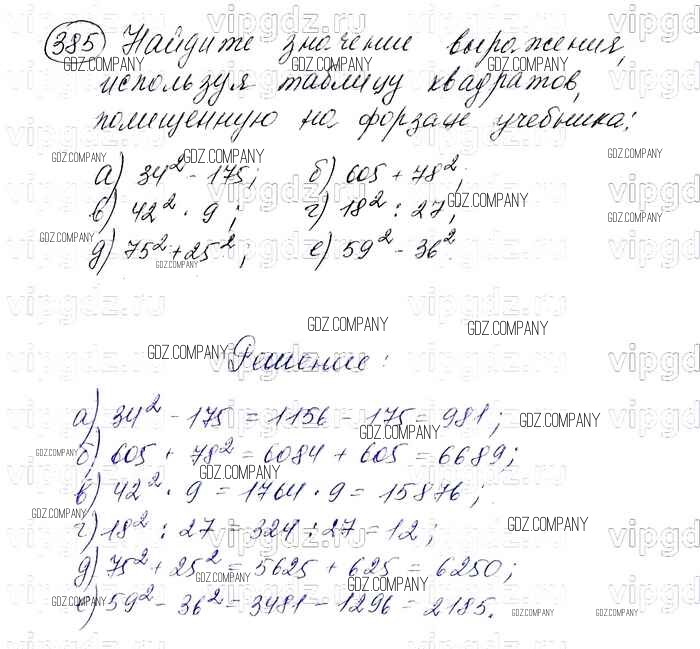 385 Найдите значение выражения,
используя таблицу квадратов,
помещенную на форзаце учебника:
а) 34² - 175; б) 605 + 78²;
в) 42² · 9; г) 18² : 27;
д) 75² + 25²; е) 59² - 36².
Решение:
а) 34² - 175 = 1156 - 175 = 981;
б) 605 + 78² = 6084 + 605 = 6689;
в) 42² · 9 = 1764 · 9 = 15876;
г) 18² : 27 = 324 : 27 = 12;
д) 75² + 25² = 5625 + 625 = 6250;
е) 59² - 36² = 3481 - 1296 = 2185.